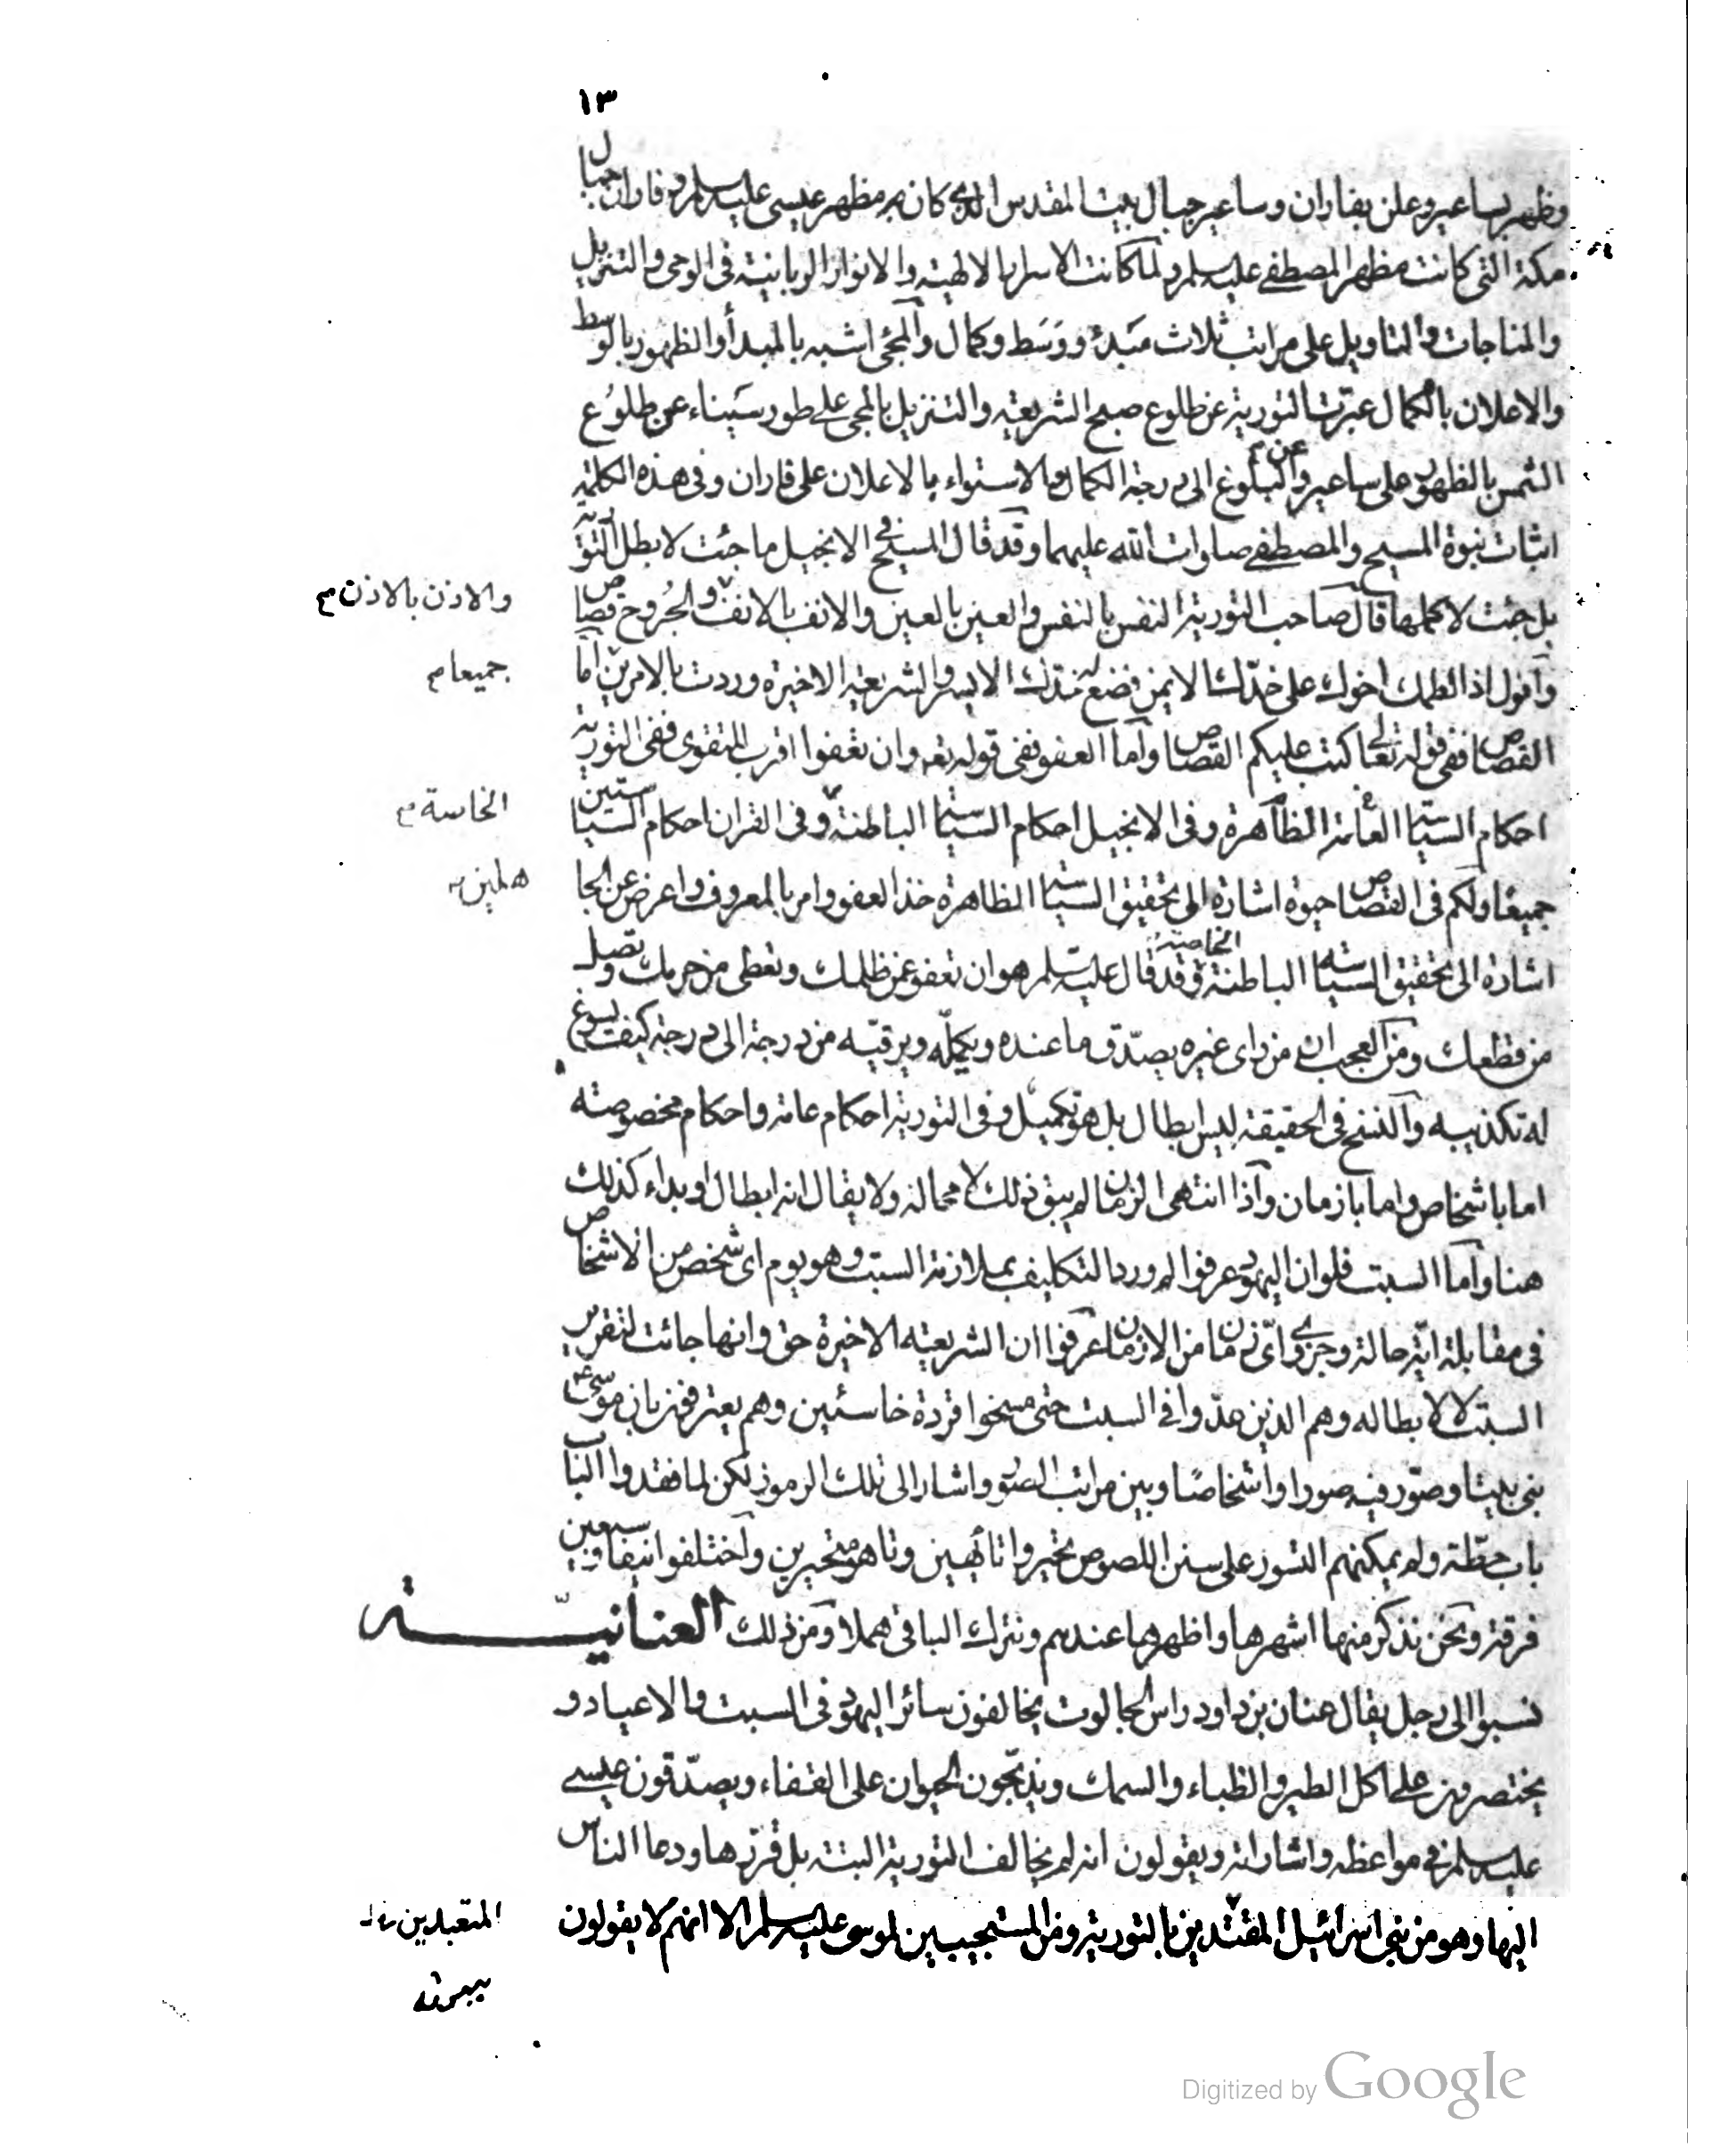 ١٣
وظهر بساعير وعلن بفاران وساعير جبال بيت المقدس الذي كان مظهر عيسى عليه سلم وفاران جبال
مكة التى كانت مظهر المصطفى عليه سلم ولما كانت الاسرار الالهية والانوار الربانية فى الوحى والتنزيل
والمناجات والتاويل على مراتب ثلاث مبدء ووسط وكمال والمجئ اشبه بالمبدأ والظهور بالوسط
والاعلان بالكمال عبرت التورية عن طلوع صبح الشريعة والتنزيل بالمجى على طور سيناء وعن طلوع
الشمس بالظهور على ساعير وعن البلوغ الى درجة الكمال والاستواء بالاعلان على فاران وفى هذه الكلمة
اثبات نبوة المسيح والمصطفى صلوات الله عليهما وقد قال المسيح فى الانجيل ما جئت لابطل التورية
بل جئت لاكملها قال صاحب التورية النفس بالنفس والعين بالعين والانف بالانف والجروح قصاص
والاذن بالاذن
واقول اذا لطمك اخوك على خدك الايمن فضع له خدك الايسر والشريعة الاخيرة وردت بالامرين اما
جميعا
القصاص ففى قوله تعالى كتب عليكم القصاص واما العفو ففى قوله تعه وان تعفوا اقرب للتقوى ففى التورية
احكام السياسة العامة الظاهرة وفى الانجيل احكام السياسة الباطنة وفى القران احكام السياستين
الخاصة
جميعا ولكم فى القصاص حيوة اشارة الى تحقيق السياسة الظاهرة خذ العفو وامر بالمعروف واعرض عن الجا
هلين
اشارة الى تحقيق السياسة الباطنة الخاصة وقد قال عليه سلم هو ان تعفو عمن ظلمك وتعطى من حرمك وتصل
من قطعك ومن العجب ان من راى غيره يصدق ما عنده ويكمله ويرقيه من درجة الى درجة كيف يسوغ
له تكذيبه والنسخ فى الحقيقة ليس ابطال بل هو تكميل وفى التورية احكام عامة واحكام مخصوصة
اما باشخاص واما بازمان واذا انتهى الزمان لم يبق ذلك لا محالة ولا يقال انه ابطال او بداء كذلك
هنا واما السبت فلو ان اليهود عرفوا لم ورد التكليف بملازمة السبت وهو يوم اى شخص من الاشخاص
فى مقابلة اية حالة وجزء اى زمان من الازمان عرفوا ان الشريعة الاخيرة حق وانها جائت لتقرير
السبت لا لابطاله وهم الذين عدوا فى السبت حتى مسخوا قردة خاسئين وهم يعترفون بان موسى عم
بنى بيتا وصور فيه صورا واشخاصا وبين مراتب الصور واشار الى تلك الرموز لكن لما فقدوا الباب
باب حطة ولم يمكنهم التسور على سنن اللصوص تحيروا تائهين وتاهوا متحيرين واختلفوا نيفا وسبعين
فرقة ونحن نذكر منها اشهرها واظهرها عندهم ونترك الباقى هملا ومن ذلك العنانية
نسبوا الى رجل يقال عنان بن داود راس الجالوت يخالفون سائر اليهود فى السبت والاعياد و
يختصرون على اكل الطير والظباء والسمك ويذبحون الحيوان على القفاء ويصدقون عيسى
عليه سلم فى مواعظه واشاراته ويقولون انه لم يخالف التورية البتة بل قررها ودعا الناس
اليها وهو من بنى اسرائيل المقتدين بالتورية ومن المستجيبين لموسى عليه سلم الا انهم لا يقولون
المتعبدين